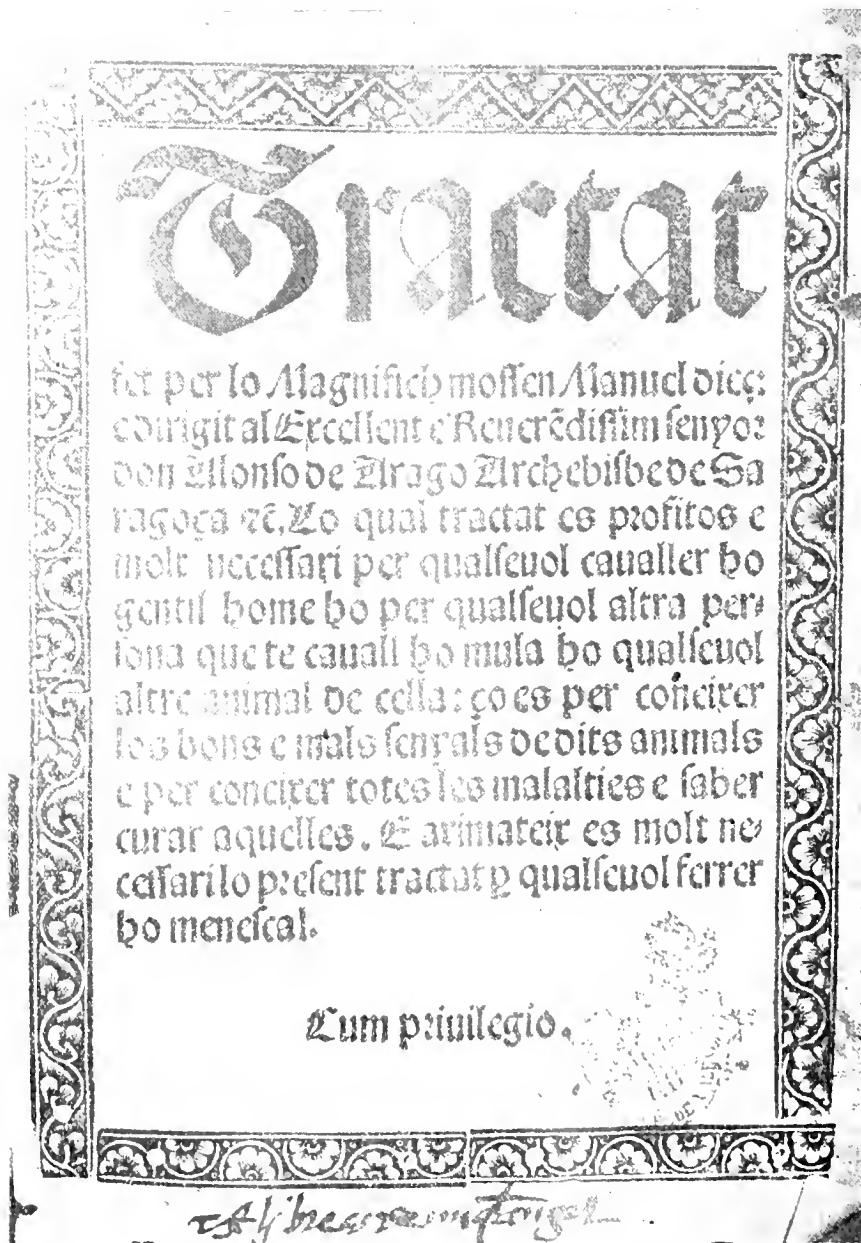 Tractat
fet per lo Magnifich mossen Manuel dieç:
e dirigit al Excellent e Reuerēdissim senyor
don Alonso de Arago Archebisbe de Sa
ragoça ⁊c̄. Lo qual tractat es profitos e
molt necessari per qualseuol caualler ho
gentil home ho per qualseuol altra per⸗
sona que te cauall ho mula ho qualseuol
altre animal de cella: ço es per coneixer
los bons e mals senyals de dits animals
e per coneixer totes les malalties e saber
curar aquelles. E aximateix es molt ne⸗
cessari lo present tractat ꝑ qualseuol ferrer
ho menescal.
Cum priuilegio.